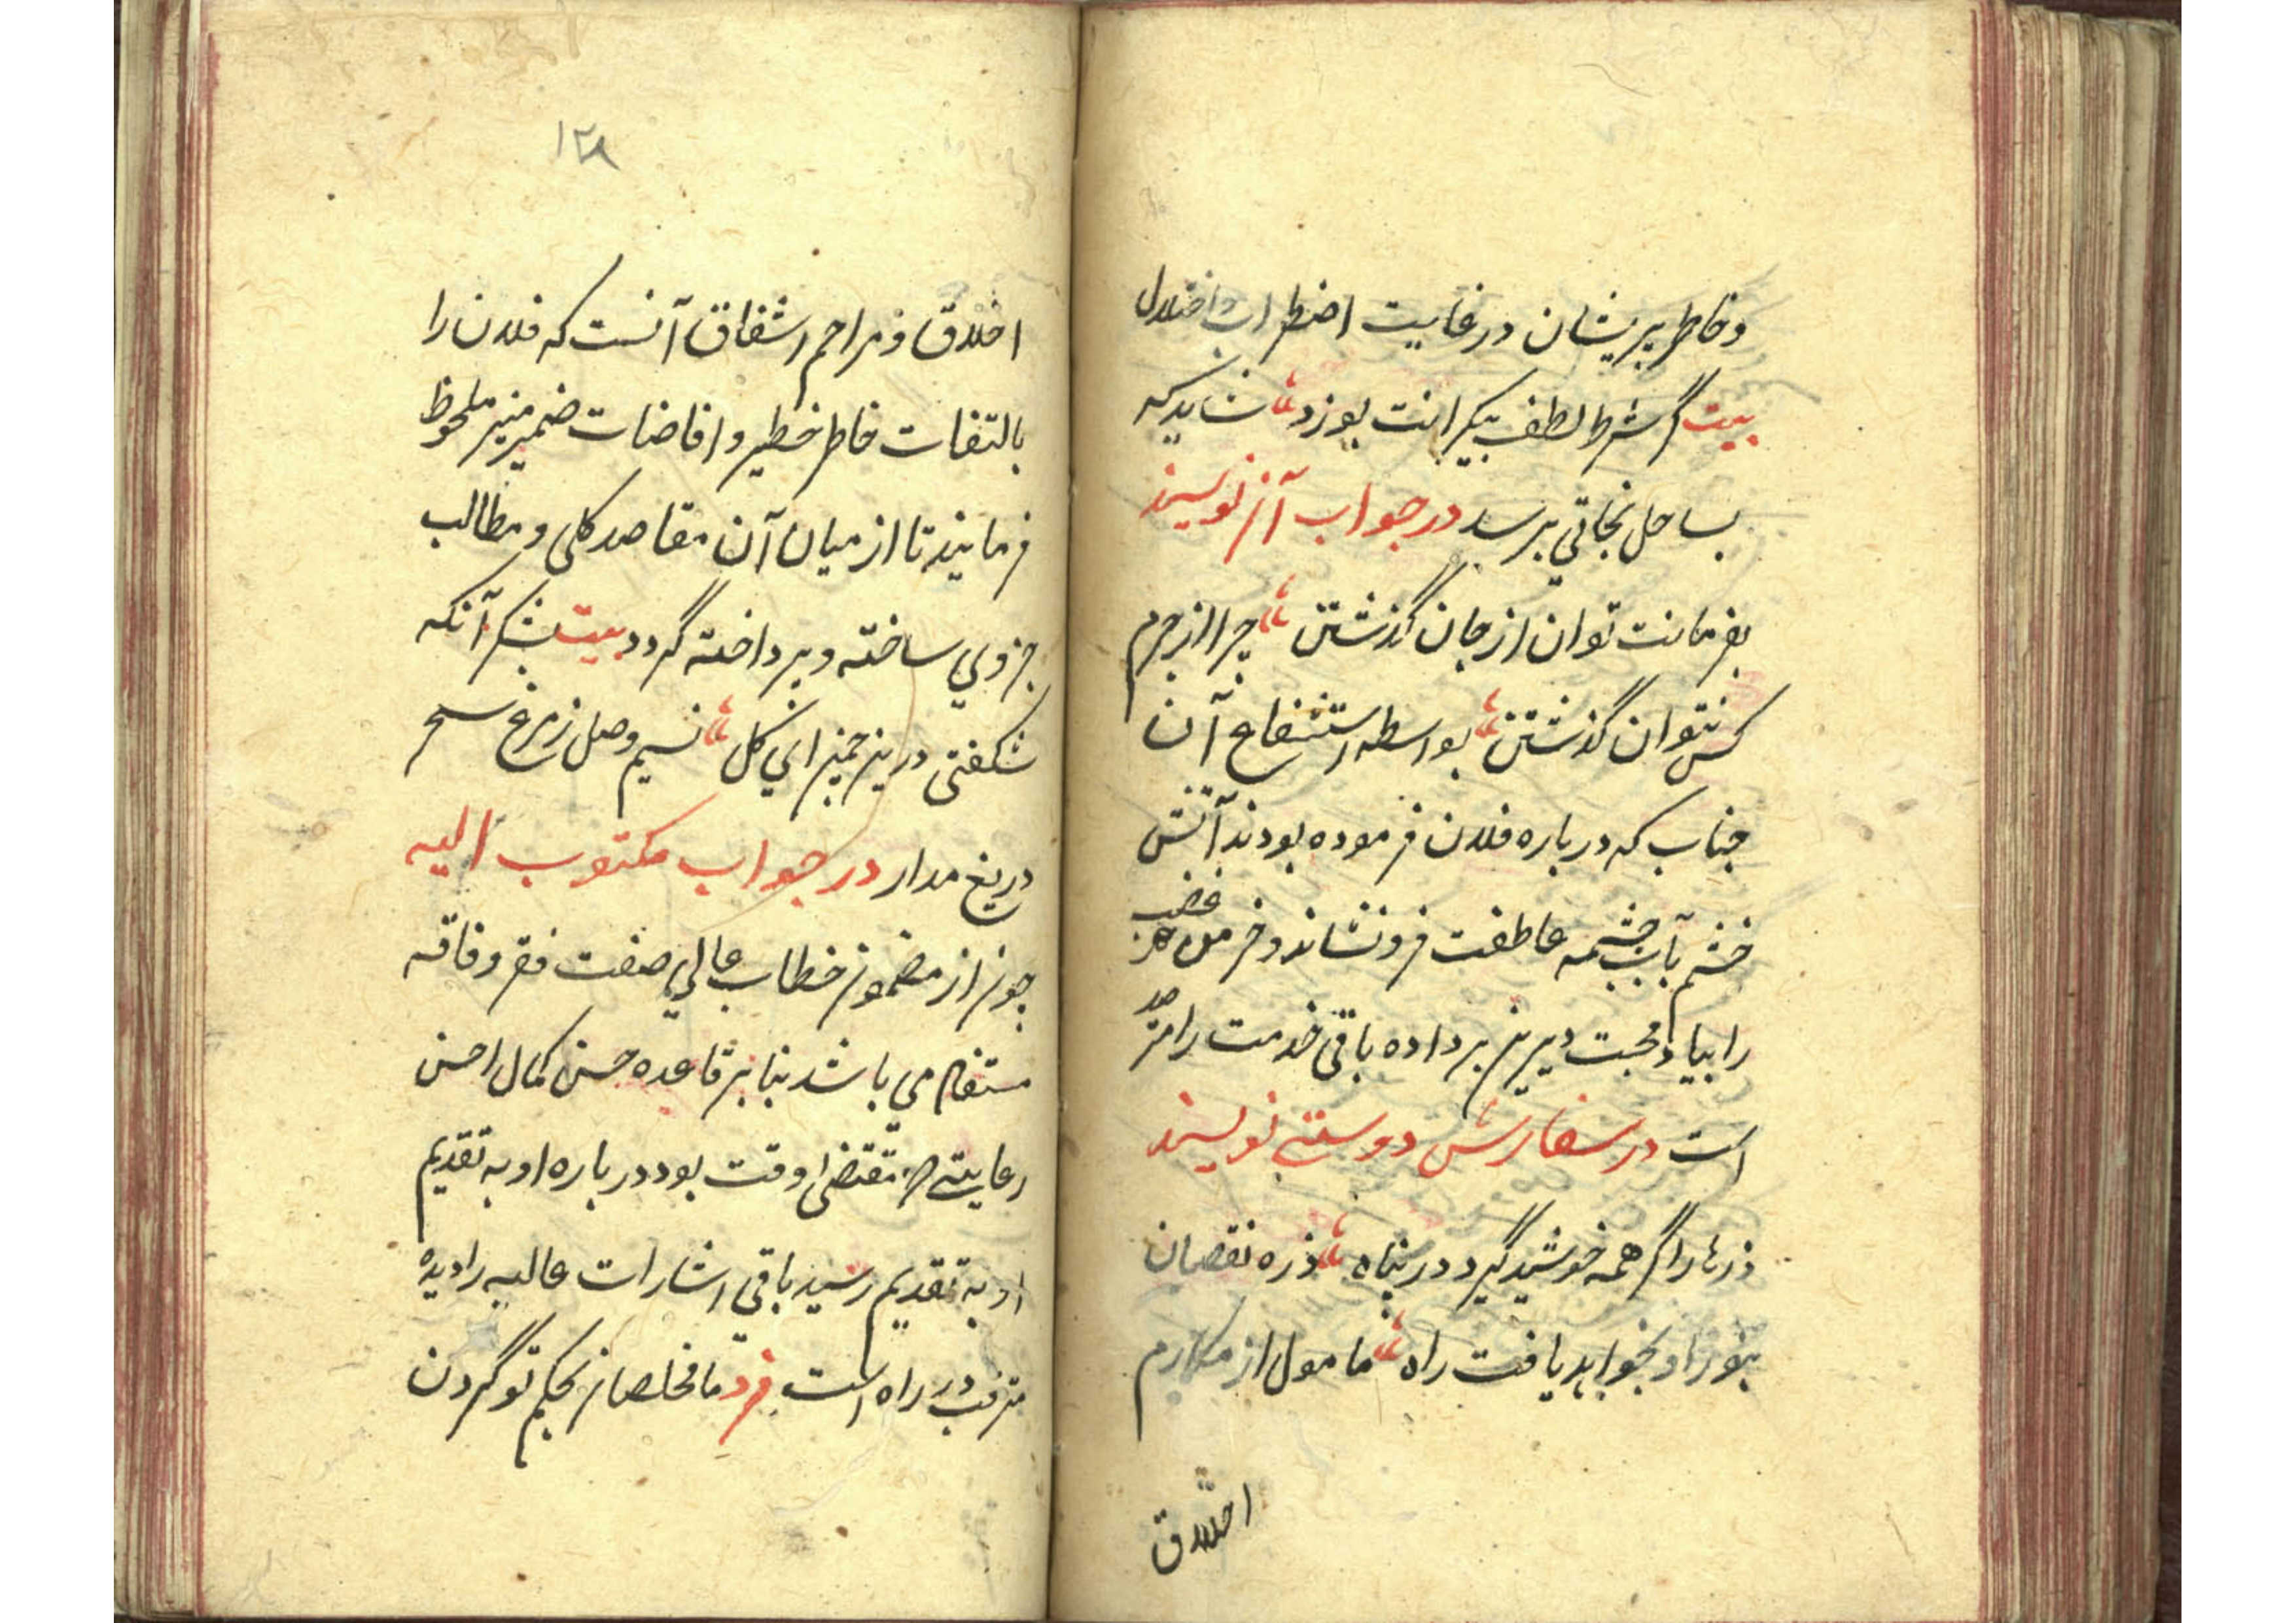 وخاطر پریشان در غایت اضطراب واختلال
بیت گر شرط لطف بیکرانت بوزد شاید که
بساحل نجاتی برسد در جواب آن نویسند
بفرمانت توان از جان گذشتن چرا از جرم
کس نتوان گذشتن بواسطه استشفاع آن
جناب که درباره فلان فرموده بودند آتش
خشم بآب چشمه عاطفت فرونشاند و خرمن غضب
را بباد محبت دیرین برداده باقی خدمت را مترصد
است در سفارش دوستی نویسند
ذرها را گر همه خورشید گیرد در پناه ذره نقصان
بنور او نخواهد یافت راه مامول از مکارم
اخلاق
۱۲۸
اخلاق و مراحم اشفاق آنست که فلان را
بالتفات خاطر خطیر و افاضات ضمیر منیر ملحوظ
فرمایند تا از میان آن مقاصد کلی و مطالب
جزوی ساخته و پرداخته گردد بیت بشکر آنکه
شکفتی درین چمن ای گل نسیم وصل ز مرغ سحر
دریغ مدار در جواب مکتوب الیه
چون از مضمون خطاب عالی صفت فقر و فاقه
مستفاد می باشد بنا بر قاعده حسن کمال احسن
رعایتی که مقتضی وقت بود درباره او به تقدیم
او به تقدیم رسید باقی اشارات عالیه را دیده
مترقب در راه است فرد ما مخلصان بحکم تو گردن